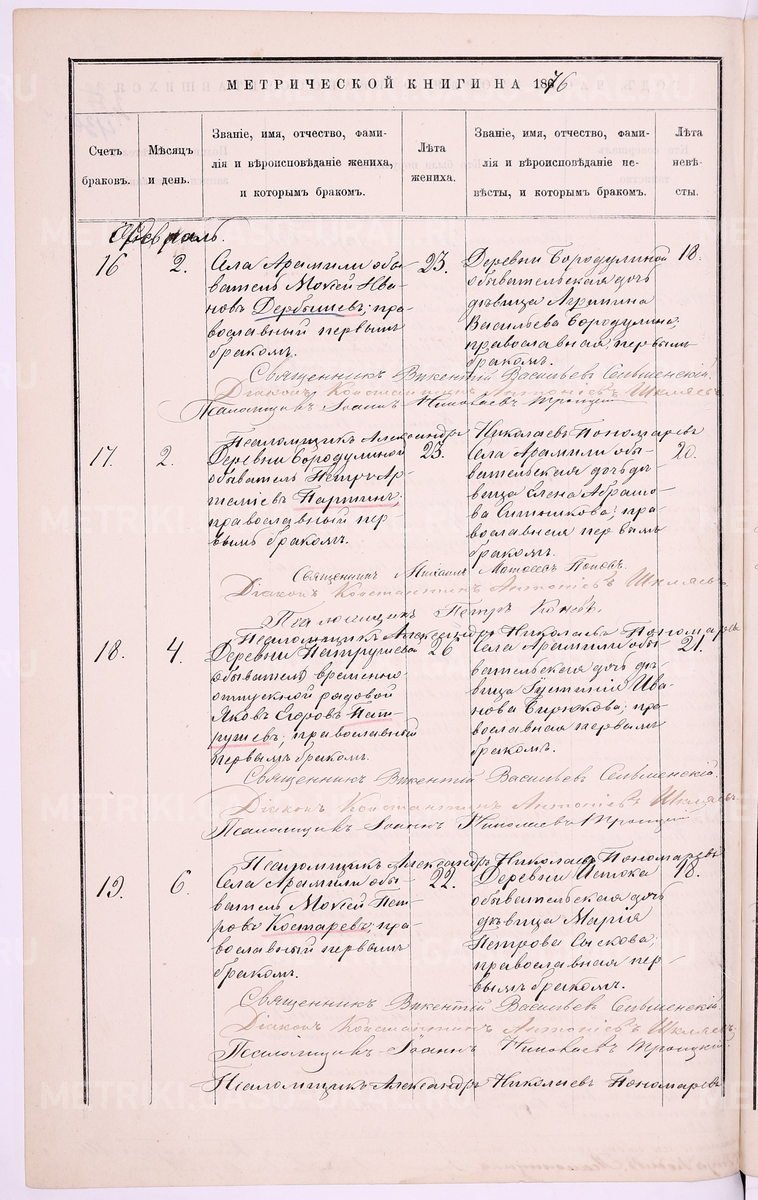 МЕТРИЧЕСКОЙ КНИГИ НА 1876
Счетъ браковъ.
Мѣсяцъ и день.
Званіе, имя, отчество, фами-
лія и вѣроисповѣданіе жениха,
и которымъ бракомъ.
Лѣта жениха.
Званіе, имя, отчество, фами-
лія и вѣроисповѣданіе не-
вѣсты, и которымъ бракомъ.
Лѣта невѣ-
сты.
Февраль.
16
2.
Села Арамили обы-
ватель Мокій Ива-
новъ Дербышевъ, пра-
вославный первымъ
бракомъ.
23.
Деревни Бородулиной
обывательская дочь
дѣвица
Васильева Бородулина,
православная, первымъ
бракомъ.
18.
Священникъ Викентій Васильевъ
Діаконъ Константинъ Антоніевъ Шкляевъ
Псаломщикъ Іоаннъ Николаевъ Троицкій
Псаломщикъ Александръ Николаевъ Пономаревъ
17.
2.
Деревни Бородулиной
обыватель Петръ Ар-
теміевъ Паршинъ,
православный пер-
вымъ бракомъ.
23.
Села Арамили обы-
вательская дочь дѣ-
вица Елена Абрамо-
ва Ситникова, пра-
вославная первымъ
бракомъ.
20.
Священникъ Михаилъ Поповъ.
Діаконъ Константинъ Антоніевъ Шкляевъ
Псаломщикъ Петръ Коневъ.
Псаломщикъ Александръ Николаевъ Пономаревъ
18.
4.
Деревни Патрушева
обыватель временно-
отпускной рядовой
Яковъ Егоровъ Пат-
рушевъ, православный
первымъ бракомъ.
26
Села Арамили обы-
вательская дочь дѣ-
вица Іустинія Ива-
нова Бирюкова, пра-
вославная первымъ
бракомъ.
21.
Священникъ Викентій Васильевъ
Діаконъ Константинъ Антоніевъ Шкляевъ.
Псаломщикъ Іоаннъ Николаевъ Троицкій
Псаломщикъ Александръ Николаевъ Пономаревъ
19.
6.
Села Арамили обы-
ватель Мокій Пет-
ровъ Костаревъ, пра-
вославный первымъ
бракомъ.
22.
Деревни Истока
обывательская дочь
дѣвица Марія
Петрова Сыскова,
православная пер-
вымъ бракомъ.
18.
Священникъ Викентій Васильевъ
Діаконъ Константинъ Антоніевъ Шкляевъ,
Псаломщикъ Іоаннъ Николаевъ Троицкій.
Псаломщикъ Александръ Николаевъ Пономаревъ